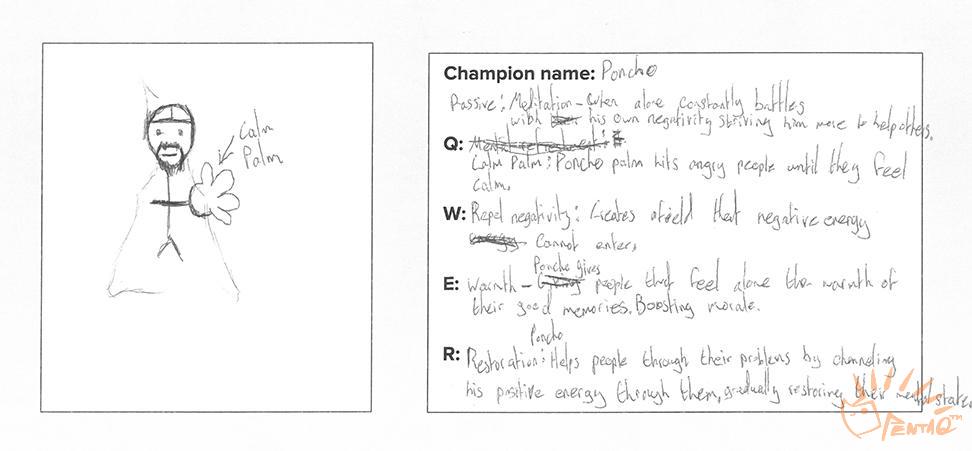 Calm
Palm
Champion name: Poncho
Passive: Meditation - When alone constantly battles
with his own negativity striving him more to help others.
Q: Mental refreshment:
Calm Palm: Poncho palm hits angry people until they feel
calm.
W: Repel negativity: Creates a field that negative energy
energy cannot enter.
Poncho gives
E: Warmth - Giving people that feel alone the warmth of
their good memories. Boosting morale.
Poncho
R: Restoration: Helps people through their problems by channeling
his positive energy through them, gradually restoring their mental state.
PENTAQ™